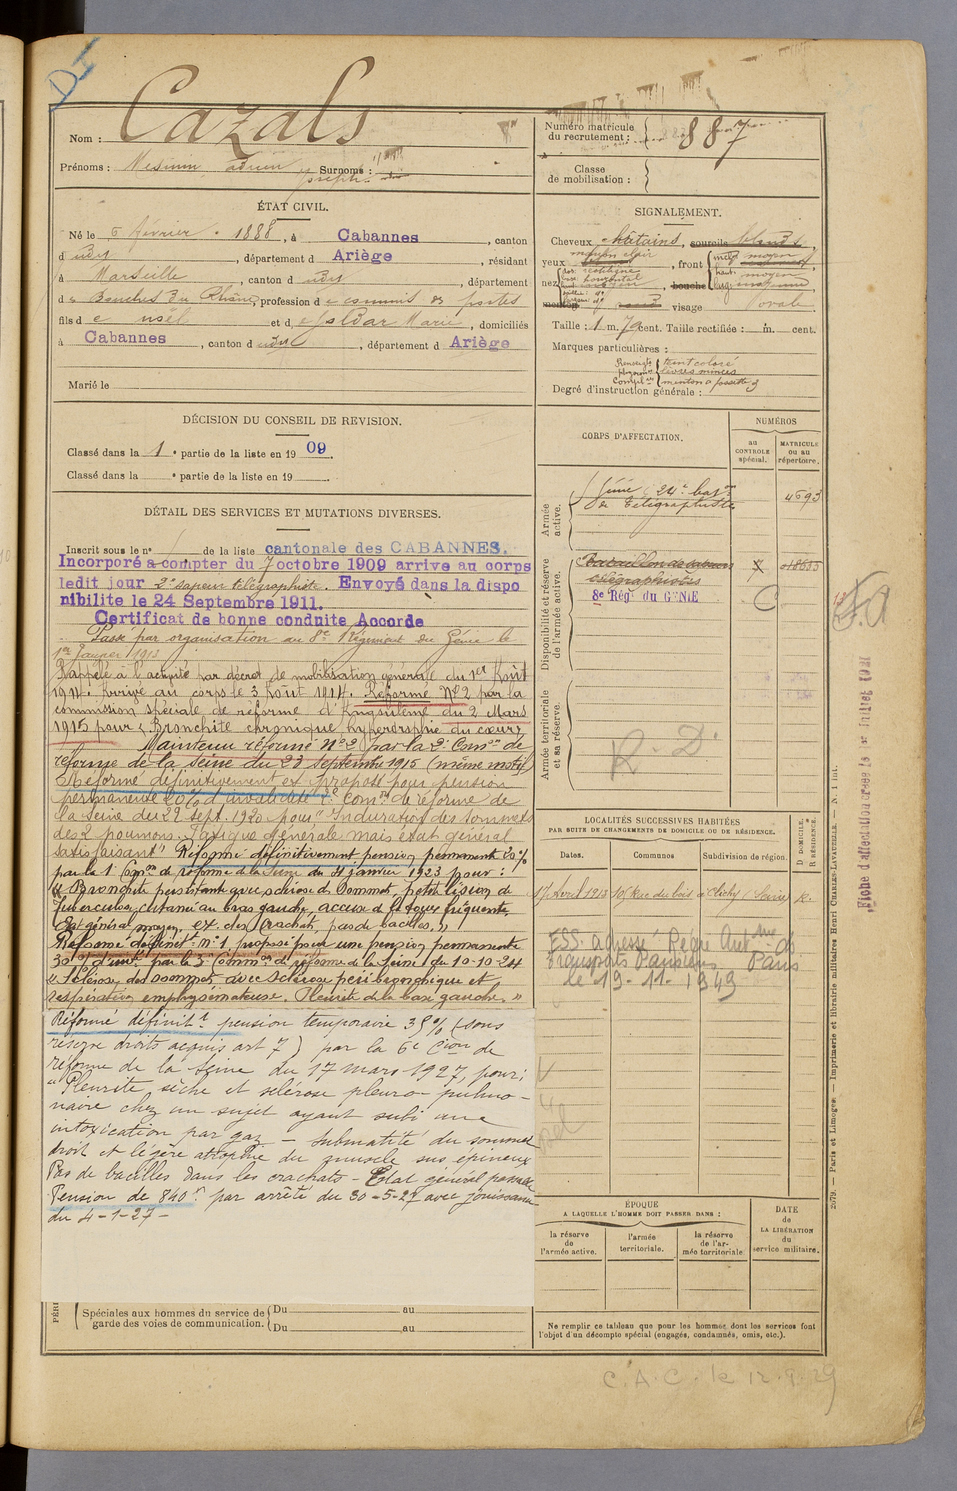 DI
Nom : Cazals
Prénoms : adrien Joseph Surnoms :
ÉTAT CIVIL.
Né le 6 février 1888, à Cabannes, canton
d udit, département d Ariège, résidant
à Marseille, canton d udit, département
d es Bouches du Rhône, profession d e commis des postes
fils d e noël et d e Marie, domiciliés
à Cabannes, canton d udit, département d Ariège
Marié le
DÉCISION DU CONSEIL DE REVISION.
Classé dans la 1 e partie de la liste en 1909.
Classé dans la e partie de la liste en 19
DÉTAIL DES SERVICES ET MUTATIONS DIVERSES.
Inscrit sous le n° de la liste cantonale des CABANNES.
Incorporé a compter du 7 octobre 1909 arrive au corps
ledit jour 2e sapeur télégraphiste. Envoyé dans la dispo
nibilite le 24 Septembre 1911.
Certificat de bonne conduite Accorde
Passé par organisation au 8e Régiment du Génie le
1er Janvier 1913
Rappelé à l'activité par décret de mobilisation générale du 1er Août
1914. Arrivé au corps le 3 Août 1914. Réformé N°2 par la
commission spéciale de réforme d'Angoulême du 2 Mars
1915 pour : Bronchite chronique hypertrophie du cœur,
Maintenu réformé n°2 par la 2e Comon de
réforme de la Seine du 23 septembre 1915 (même motif)
Réformé définitivement et proposé pour pension
permanente 20% d'invalidité 2e Comon de réforme de
la Seine du 22 sept. 1920 pour "Induration des sommets
des 2 poumons. Fatigue générale mais état général
satisfaisant" Réformé définitivement pension permanente 20%
par la 1e Comon de réforme de la Seine du 31 janvier 1923 pour :
"Bronchite persistante avec sclérose du Sommet, petite lésion de
tuberculose cutanée au bras gauche, accuse de la toux fréquente,
Etat général moyen, ex. des Crachats, pas de bacilles."
Réformé définit. n°1 proposé pour une pension permanente
30% d'invté par la 3e Common de réforme de la Seine du 10-10-24
"Sclérose des sommets, avec sclérose péri bronchique et
respiration emphysémateuse. Pleurite de la base gauche."
Réformé définit.t pension temporaire 35% (sous
réserve droits acquis art 7) par la 6e Cion de
réforme de la Seine du 17 mars 1927, pour :
"Pleurite sèche et sclérose pleuro-pulmo-
naire chez un sujet ayant subi une
intoxication par gaz - submatité du sommet
droit et légère atrophie du muscle sus épineux
Pas de bacilles dans les crachats - Etat général passable
Pension de 840 f par arrêté du 30-5-27 avec jouissance
du 4-1-27 -
PÉRI
Spéciales aux hommes du service de garde des voies de communication.
Du au
Du au
Numéro matricule du recrutement : 887
Classe de mobilisation :
SIGNALEMENT.
Cheveux châtains, sourcils blonds,
yeux marron clair, front moyen
nez bouche moyenne
menton rond visage ovale
Taille : 1 m. 79 cent. Taille rectifiée : m. cent.
Marques particulières :
teint coloré
lèvres minces
menton à fossette
Degré d'instruction générale :
CORPS D'AFFECTATION.
NUMÉROS
au CONTROLE spécial.
MATRICULE ou au répertoire.
Armée active.
Génie 24e baton de Télégraphistes 4593
Disponibilité et réserve de l'armée active.
Bataillon de sapeurs télégraphistes
8e Rég. du GÉNIE
Armée territoriale et sa réserve.
R. D.
LOCALITÉS SUCCESSIVES HABITÉES
PAR SUITE DE CHANGEMENTS DE DOMICILE OU DE RÉSIDENCE.
Dates. Communes Subdivision de région. D DOMICILE. R RÉSIDENCE.
17 Avril 1913 10 Rue du bois à Clichy Seine R.
ESS. adresse Régie Autme des
Transports Parisiens Paris
le 19-11-1949
ÉPOQUE
A LAQUELLE L'HOMME DOIT PASSER DANS :
la réserve de l'armée active.
l'armée territoriale.
la réserve de l'armée territoriale
DATE de LA LIBÉRATION du service militaire.
Ne remplir ce tableau que pour les hommes dont les services font
l'objet d'un décompte spécial (engagés, condamnés, omis, etc.).
C.A.C. le 12.9.29
F.A
Fiche d'affectation créée le 1er Juillet 1921
2079. — Paris et Limoges. — Imprimerie et librairie militaires Henri CHARLES-LAVAUZELLE. — N. 1 int.